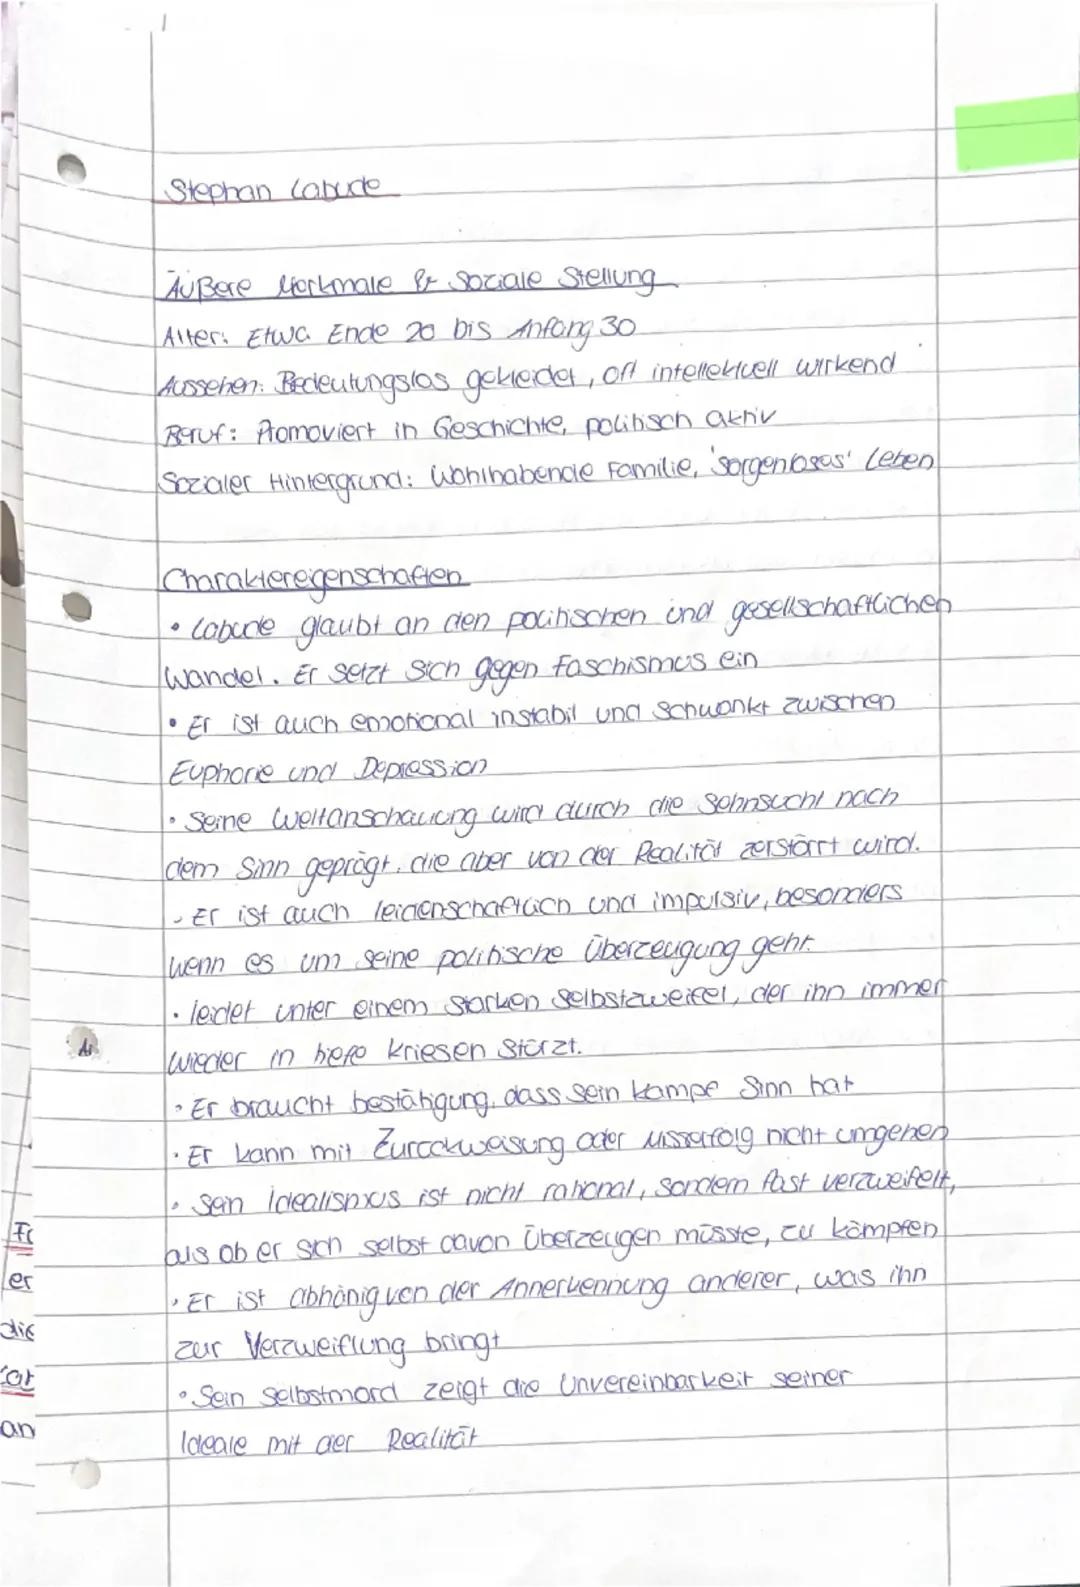 Stephan Labude
Äußere Merkmale & Soziale Stellung
Alter: Etwa Ende 20 bis Anfang 30
Aussehen: Bedeutungslos gekleidet, oft intellektuell wirkend
Beruf: Promoviert in Geschichte, politisch aktiv
Sozialer Hintergrund: Wohlhabende Familie, 'sorgenloses' Leben
Charaktereigenschaften
• Labude glaubt an den politischen und gesellschaftlichen
Wandel. Er setzt sich gegen Faschismus ein
• Er ist auch emotional instabil und schwankt zwischen
Euphorie und Depression
• Seine Weltanschauung wird durch die Sehnsucht nach
dem Sinn geprägt, die aber von der Realität zerstörrt wird.
• Er ist auch leidenschaftlich und impulsiv, besonders
wenn es um seine politische Überzeugung geht.
• leidet unter einem starken Selbstzweifel, der ihn immer
Ar
wieder in tiefe Kriesen stürzt.
• Er braucht bestätigung, dass sein Kampf Sinn hat
• Er kann mit Zurückweisung oder Misserfolg nicht umgehen
• Sein Idealismus ist nicht rational, sondern fast verzweifelt,
Fr
als ob er sich selbst davon überzeugen müsste, zu kämpfen
er
• Er ist abhänig von der Annerkennung anderer, was ihn
die
zur Verzweiflung bringt
• Sein Selbstmord zeigt die Unvereinbarkeit seiner
an
Ideale mit der Realität